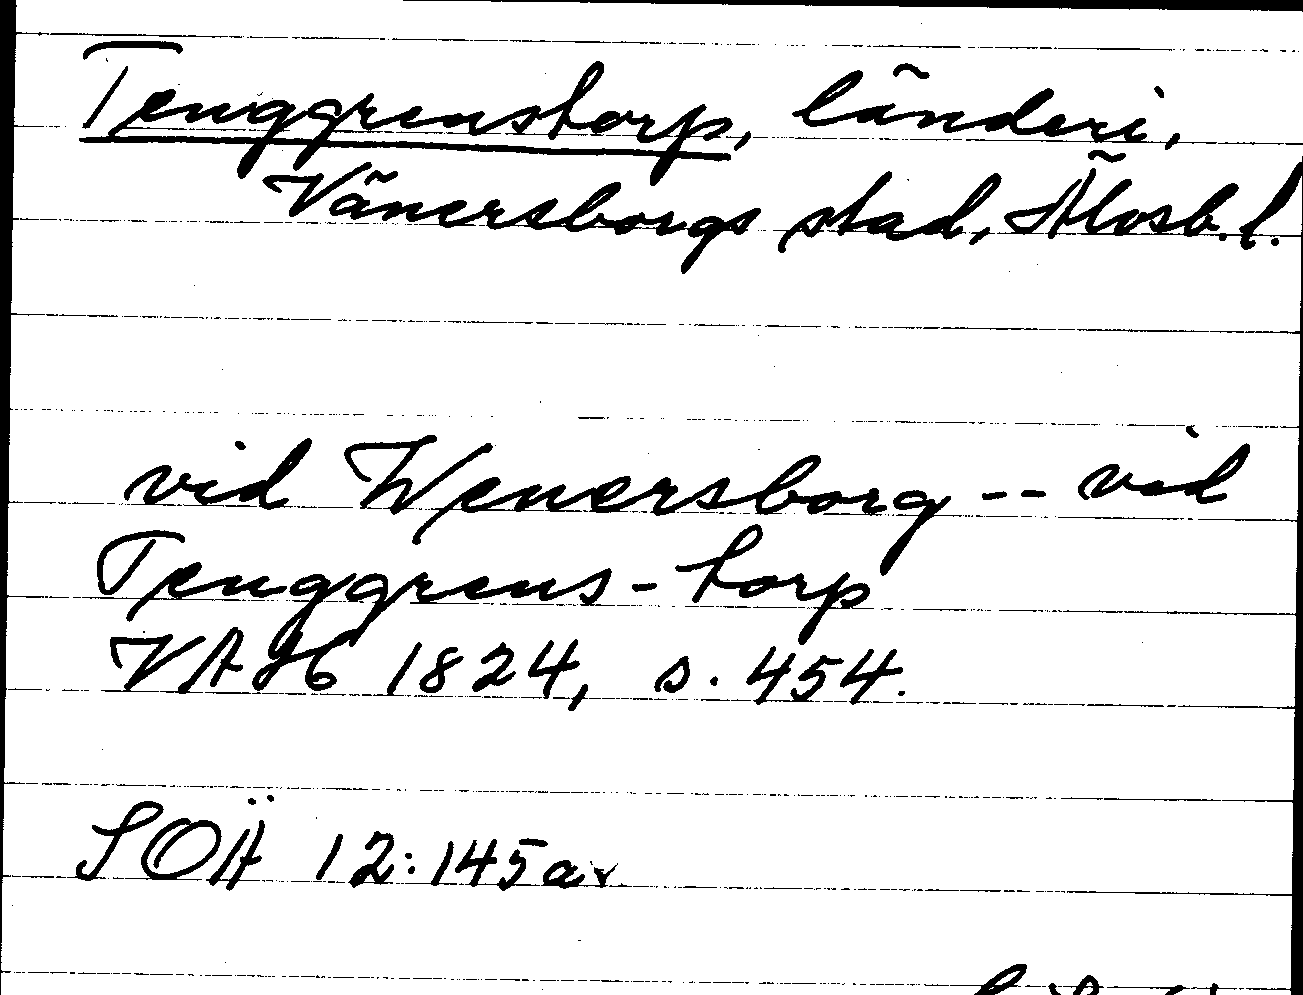 Tenggrenstorp, länderi,
Vänersborgs stad, Älvsb. l.
vid Wenersborg -- vid
Tenggrens-torp
VAH 1824, s. 454.
SOÄ 12:145 a.